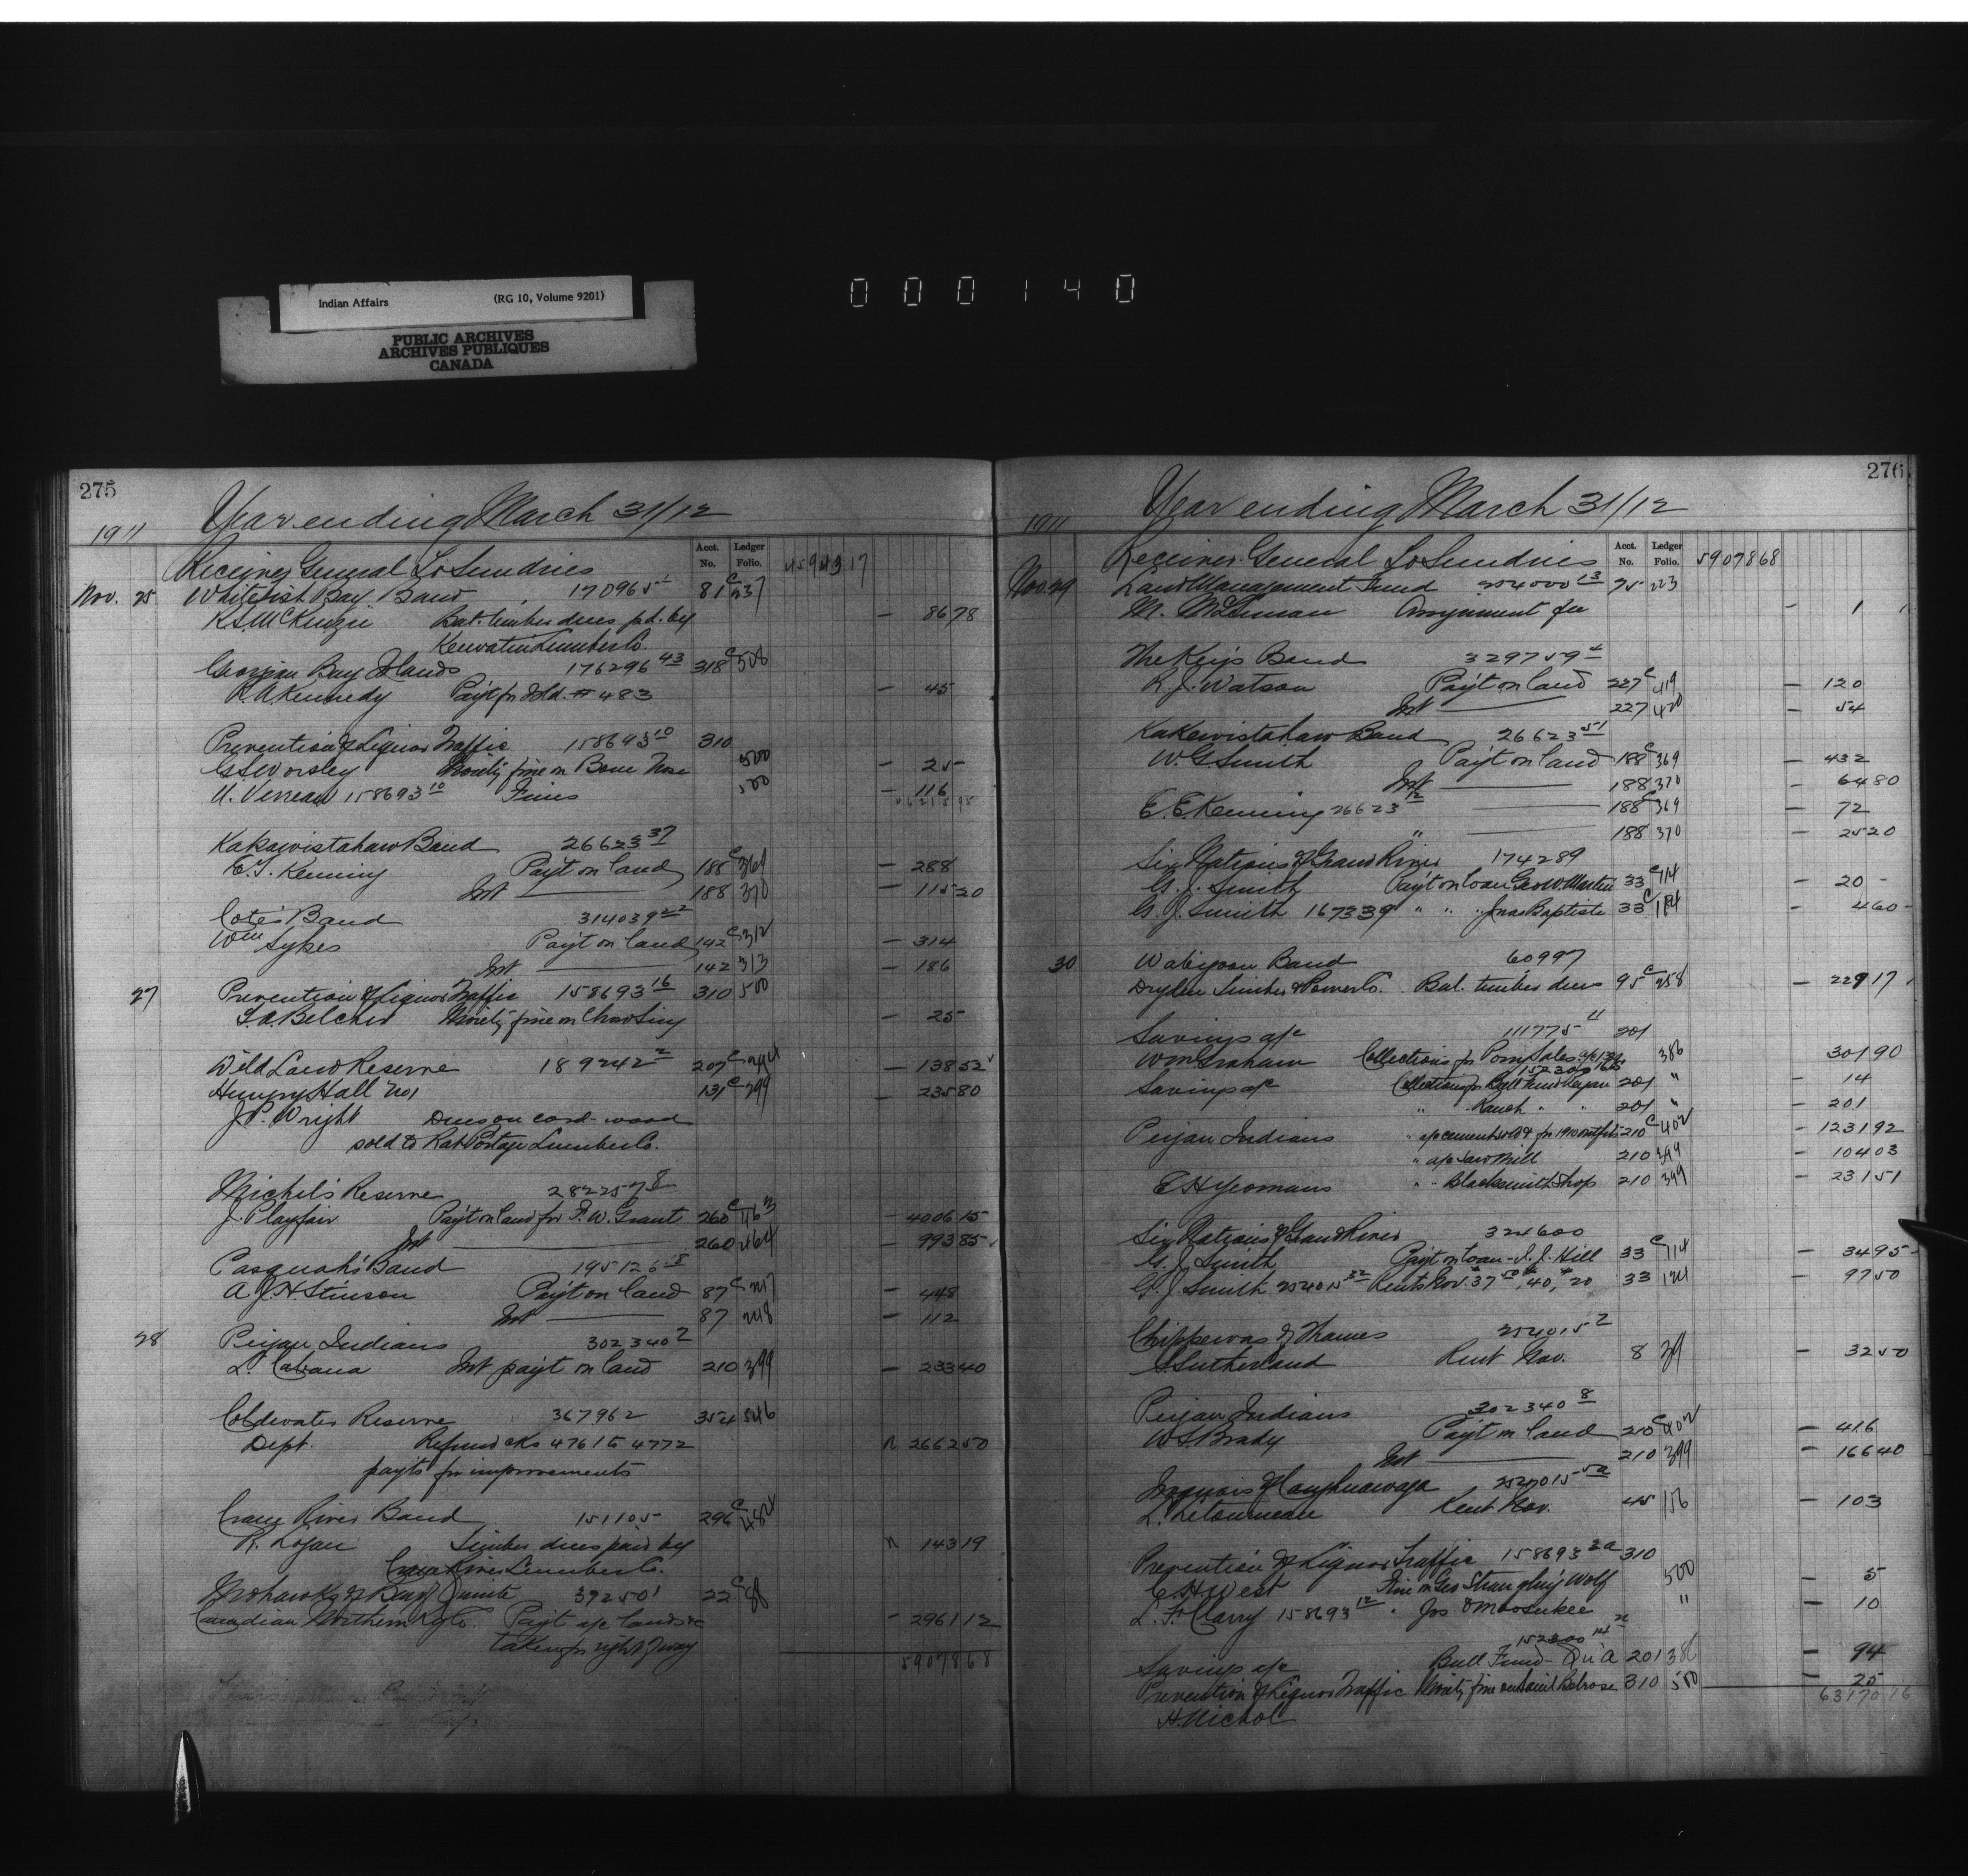 Indian Affairs (RG 10, Volume 9201)
PUBLIC ARCHIVES
ARCHIVES PUBLIQUES
CANADA
000140
275
1911 Year ending March 31/12
Acct. No. Ledger Folio.
Receiver General To Sundries 4594317
Nov. 25 Whitefish Bay Band 170965 81 C 237
R.S. McKenzie Bal. timber dues pd. by — 8678
Keewatin Lumber Co.
Georgian Bay Islands 176296 43 318 C 508
R.A. Kennedy Payt for Isld. # 483 — 45
Prevention of Liquor Traffic 158693 10 310
G.S. Worsley Moiety fine on Bone Nose 500 — 25
U. Verreau 158693 10 Fines 500 — 116
Kakewistahaw Band 26623 37
E.T. Kenning Payt on land 188 C 369 — 288
Int 188 370 — 11520
Cote's Band 314039 22
Wm Sykes Payt on land 142 C 312 — 314
Int 142 313 — 186
27 Prevention of Liquor Traffic 158693 16 310 500
S.A. Belcher Moiety fine on Chow Sing — 25
Wild Land Reserve 189242 2 207 C 394 — 13852
Henry Hall No 1 131 C 299 — 23580
J.P. Wright Dues on cord-wood
sold to Rat Portage Lumber Co.
Michel's Reserve 282257 8
J. Playfair Payt on land for F.W. Grant 260 C 463 — 400615
Int 260 464 — 99385
Pasquah's Band 195126 8
A.J.H. Stinson Payt on land 87 C 247 — 448
Int 87 248 — 112
28 Peigan Indians 302340 7
L. Cabana Int payt on land 210 399 — 23340
Coldwater Reserve 367962 354 546
Dept. Refund cks 4761 to 4772 266250
payts for improvements
Crane River Band 151105 296 C 482
R. Logan Timber dues paid by 14319
Crane River Lumber Co.
Mohawks of Bay of Quinte 392501 22 C 88
Canadian Northern Ry Co. Payt a/c lands &c — 296112
taken for right of way
5907868
276
1911 Year ending March 31/12
Acct. No. Ledger Folio.
Receiver General To Sundries 5907868
Nov. 29 Land Management Fund 254000 13 75 223
M. McLennan Assignment fee — 1
The Key's Band 329759 4
R.J. Watson Payt on land 227 C 419 — 120
Int 227 420 — 54
Kakewistahaw Band 26623 51
W.G. Smith Payt on land 188 C 369 — 432
Int 188 370 — 6480
E.E. Kenning 26623 12 188 C 369 — 72
" 188 370 — 2520
Six Nations of Grand River 174289
G.J. Smith Payt on loan Geo W. Martin 33 C 114 — 20
G.J. Smith 167339 " " " Jno Baptiste 33 C 114 — 460
30 Wabigoon Band 60997
Dryden Timber & Power Co. Bal. timber dues 95 C 258 — 22917
Savings a/c 111775 11 201
Wm Graham Collections for Pony Sales 386 30190
Savings a/c Collections for Bull Fund 201 " — 14
" Ranch " " 201 " — 201
Peigan Indians " a/c cement sold for 1910 210 C 402 — 123192
" a/c Saw Mill 210 399 — 10403
E.H. Yeomans " " Blacksmith Shop 210 399 — 23151
Six Nations of Grand River 324600
G.J. Smith Payt on loan - J.J. Hill 33 C 114 — 3495
G.J. Smith 254015 32 Rents Nov. 37 50, 40, 20 33 124 — 9750
Chippewas of Thames 254015 2
S. Sutherland Rent Nov. 8 39 — 3250
Peigan Indians 302340 8
W.S. Brady Payt on land 210 C 402 — 416
Int 210 399 — 16640
Iroquois of Caughnawaga 254015 5a
L. Letourneau Rent Nov. 45 156 — 103
Prevention of Liquor Traffic 158693 2a 310
C.H. West Fine on Geo Strangling Wolf 500 — 5
L.F. Clarry 158693 12 " Jos Omoosukee " — 10
152300 14
Savings a/c Bull Fund - Qu'A 201 386 — 94
Prevention of Liquor Traffic Moiety fine on Belrose 310 500 — 25
H. Nichol 6317016